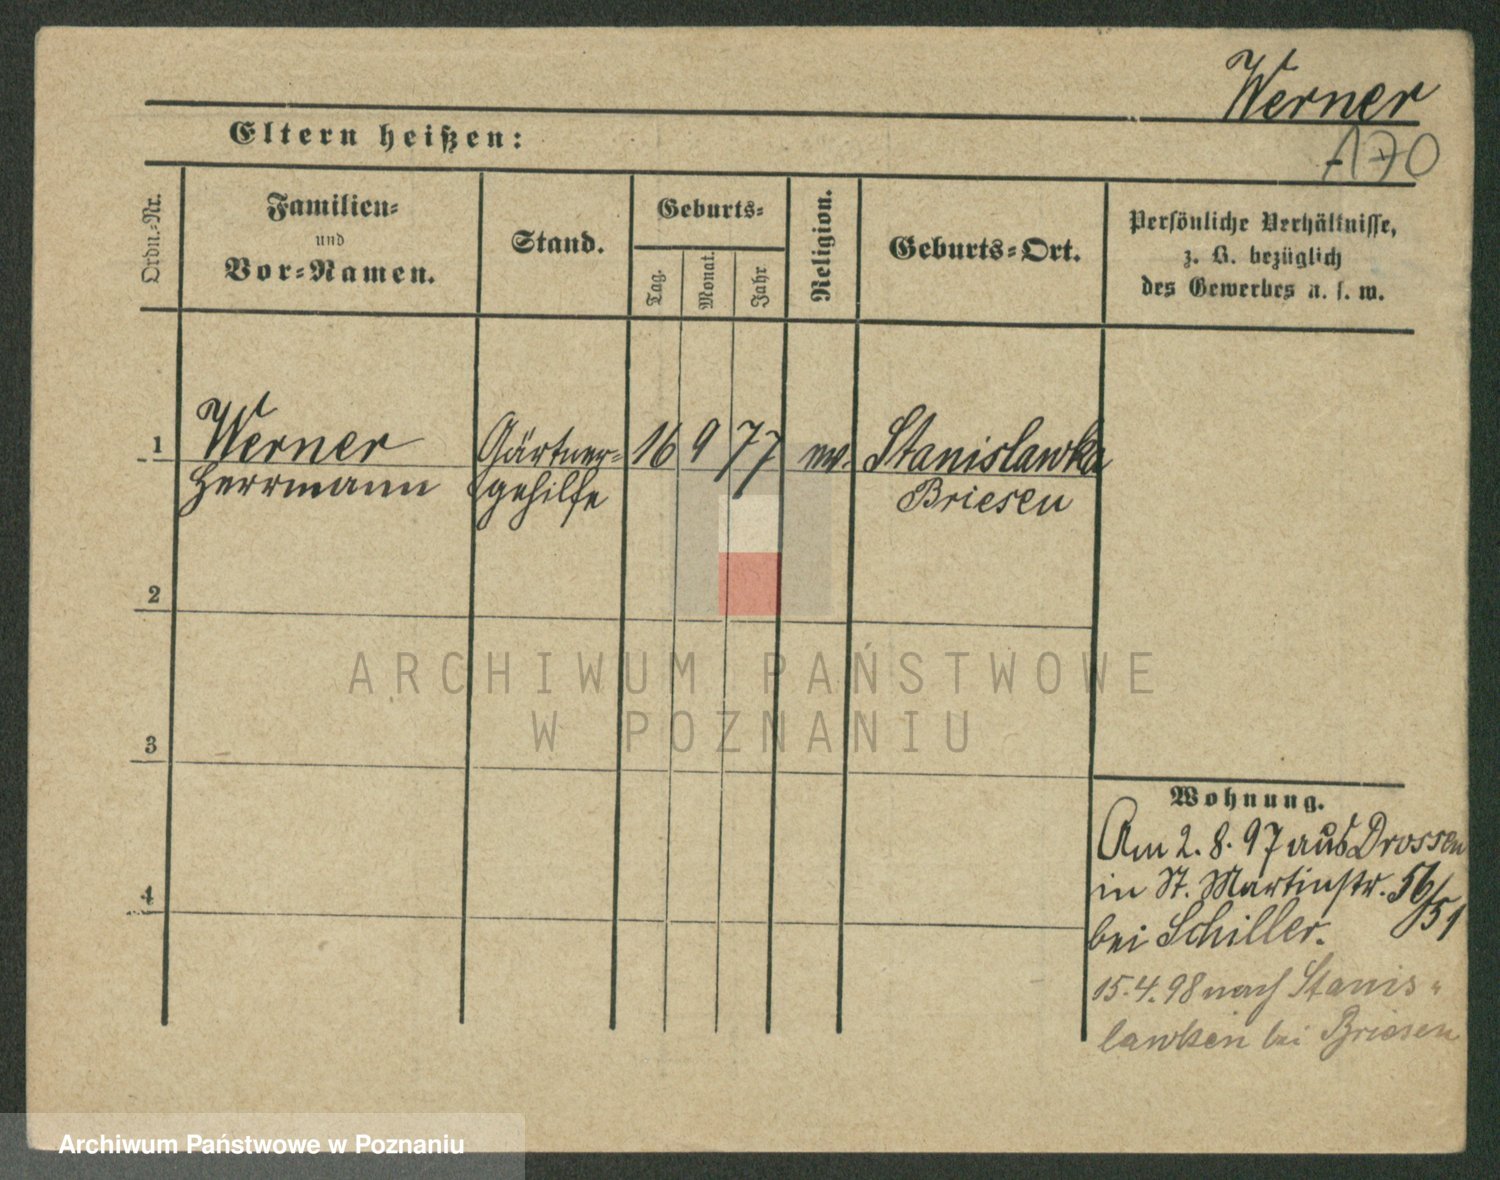 Werner
170
Eltern heißen:
Ordn.-Nr.
Familien-
und
Vor-Namen.
Stand.
Geburts-
Tag.
Monat.
Jahr
Religion.
Geburts-Ort.
Persönliche Verhältnisse,
z. B. bezüglich
des Gewerbes u. s. w.
1
Werner
Herrmann
Gärtner-
gehilfe
16
9
77
ev.
Stanislawka
Briesen
2
3
4
Wohnung.
Am 2. 8. 97 aus Drossen
in St. Martinstr. 56/51
bei Schiller.
15.4.98 nach Stanis-
lawken bei Briesen
ARCHIWUM PAŃSTWOWE
W POZNANIU
Archiwum Państwowe w Poznaniu